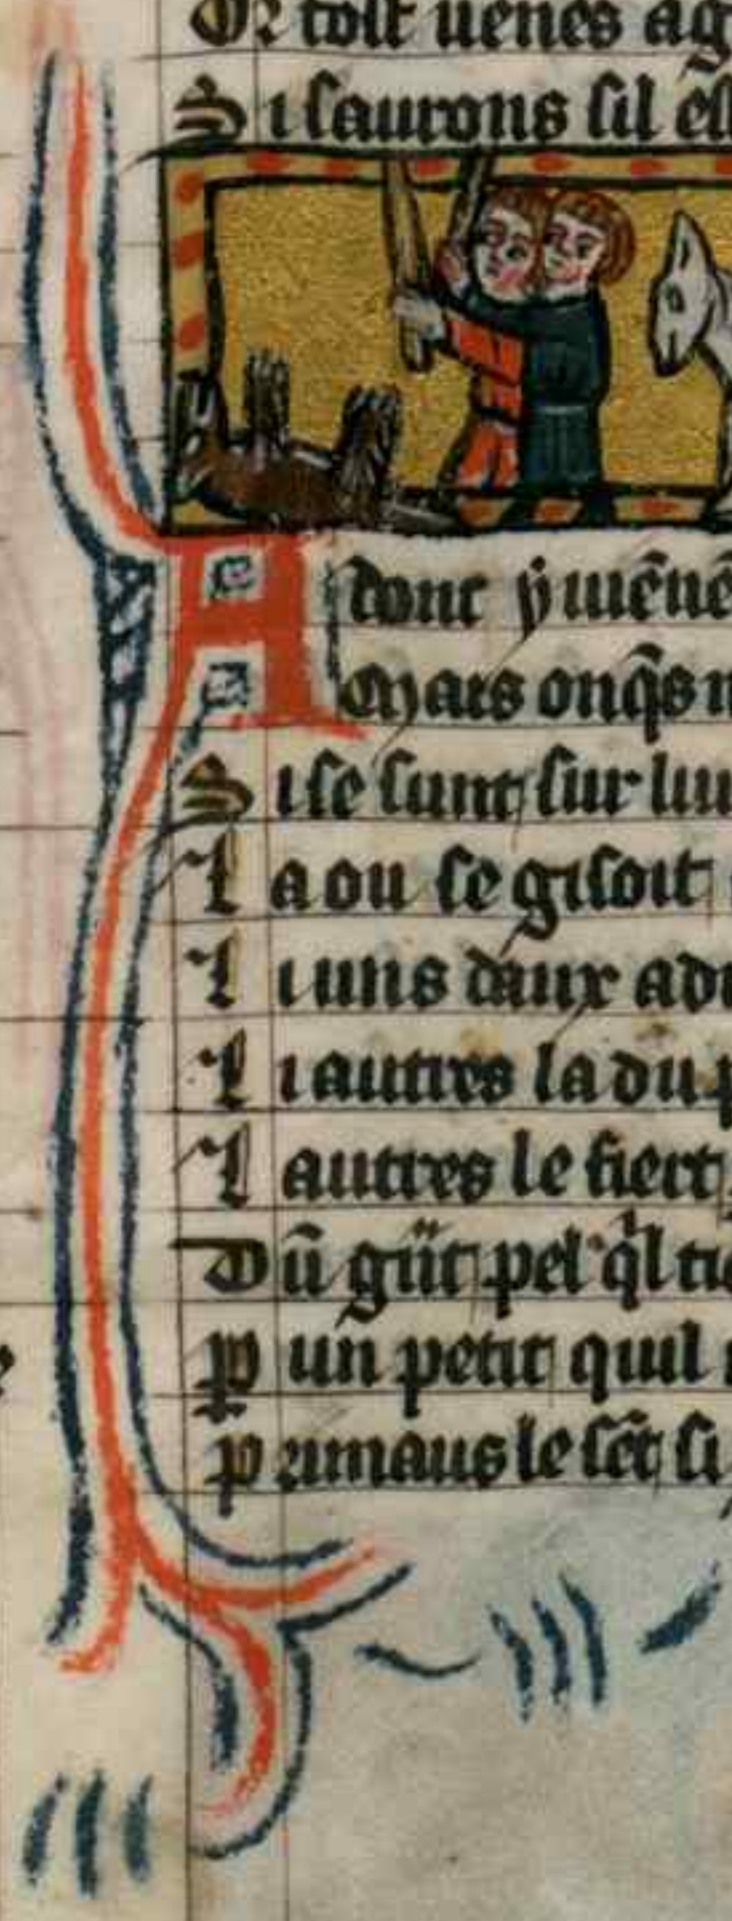 Or tost uenes ag
Si saurons sil est
Adont y uienē
Mais onq̄s n
Si se sunt sur lui
La ou se gisoit
Li uns daux ad
Li autres la du p
Lautres le fiert
Dū gūt pel q̄l ti
P un petit quil
Primaus le sēt si